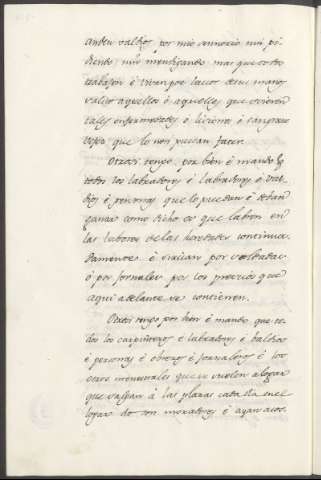 anden valdios por mio sennorio nin pi-
diendo, nin mendigando mas que todos
trabajen è vivan por labor de sus manos
salvo aquellos è aquellas que ovieren
tales enfermedades ò lisiones ò tan grave
vejez que lo non puedan facer.
Otrosi tengo por bien è mando q
todos los labradores è labradoras è val-
dios è personas que lo puedan è deban
ganar como dicho es que labren en
las labores de las heredades continua-
damente è sirvan por soldadas
ò por jornales por los precios que
aqui adelante se contienen.
Otrosi tengo por bien è mando que to-
dos los carpinteros è labradores è baldios
è personas è obreros è jornaleros è los
otros menestrales que se suelen alogar
que salgan à las plazas cada dia en el
logar do son moradores è ayan acos-